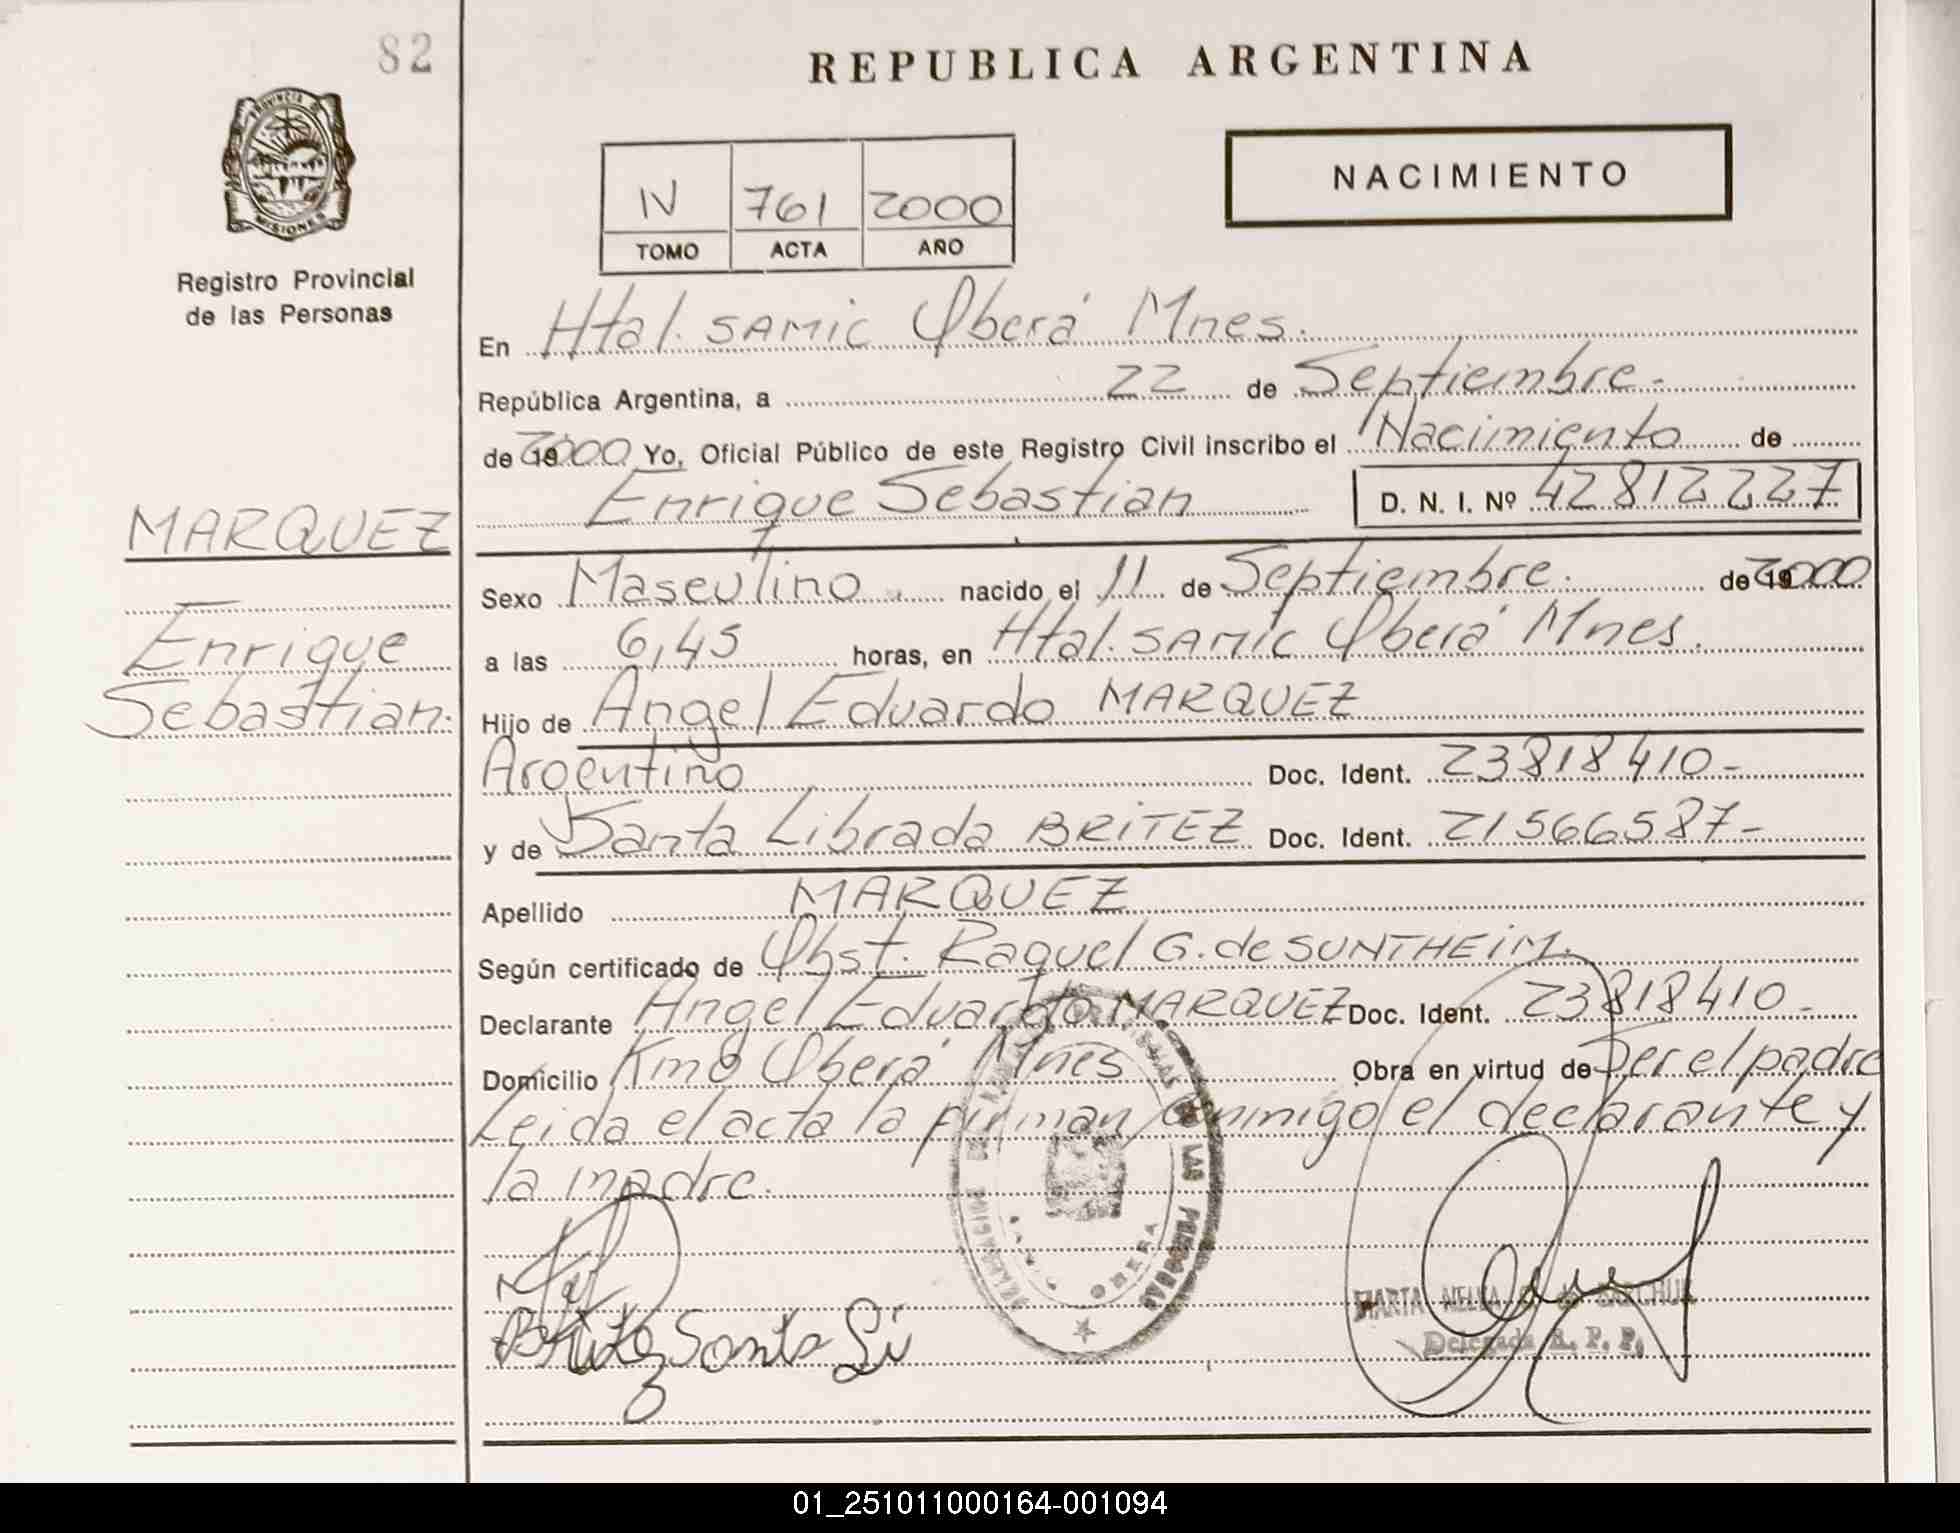 82
REPUBLICA ARGENTINA
PROVINCIA DE
MISIONES
Registro Provincial
de las Personas
NACIMIENTO
IV 761 2000
TOMO ACTA AÑO
En Htal. SAMIC Oberá Mnes.
República Argentina, a 22 de Septiembre.
de 2000 Yo, Oficial Público de este Registro Civil inscribo el Nacimiento de
Enrique Sebastian D. N. I. Nº 42812227
MARQUEZ
Enrique
Sebastian.
Sexo Masculino nacido el 11 de Septiembre. de 2000
a las 6,45 horas, en Htal. SAMIC Oberá Mnes.
Hijo de Angel Eduardo MARQUEZ
Argentino Doc. Ident. 23818410-
y de Santa Librada BRITEZ Doc. Ident. 21566587-
Apellido MARQUEZ
Según certificado de Obst. Raquel G. de SUNTHEIM.
Declarante Angel Eduardo MARQUEZ Doc. Ident. 23818410-
Domicilio Km8 Oberá Mnes Obra en virtud de Ser el padre
Leida el acta la firman conmigo el declarante y
la madre.
DE LAS PERSONAS
OBERA
Britez Santa Li
MARTA
Delegada R. P. P.
01_251011000164-001094